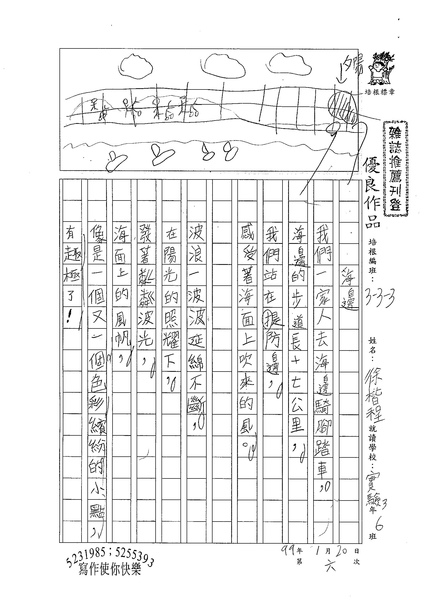 夕陽
培根標章
雜誌推薦刊登
優良作品
培根編班：3-3-3
姓名：徐楷程
就讀學校：實驗3年6班
海邊
我們一家人去海邊騎腳踏車，
海邊的步道長十七公里，
我們站在堤防邊，
感受著海面上吹來的風。
波浪一波波延綿不斷，
在陽光的照耀下，
發著粼粼波光，
海面上的風帆，
像是一個又一個色彩繽紛的小點，
有趣極了！
99年1月20日
第六次
5231985；5255393
寫作使你快樂